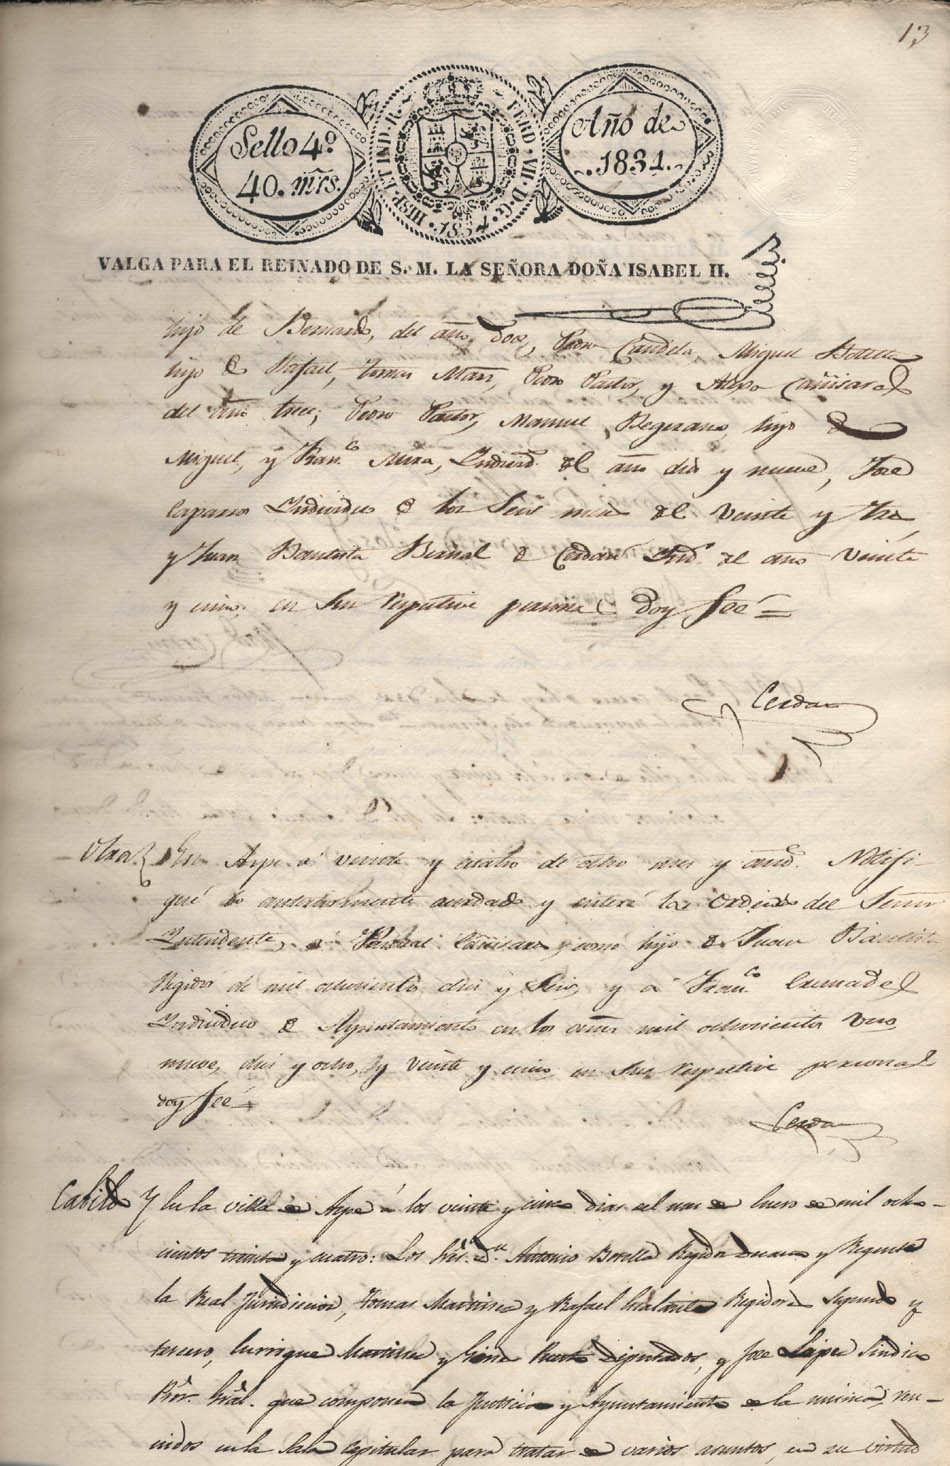 13
Sello 4º
40. mrs.
HISP. ET IND. R. FERD. VII. D. G. 1834.
Año de
1834.
VALGA PARA EL REINADO DE S. M. LA SEÑORA DOÑA ISABEL II.
hijo de Bernardo, del año doce, Pedro Candela, Miguel Botella
hijo de Rafael, Tomas Pedro Pastor, y
del año trece; Pedro Pastor, Manuel hijo de
Miguel, y Franco. Mira, del año diez y nueve, Jose
Individuo de los Seis mes del veinte y tres
y Juan Bautista Bernal de Cerdan Indº. del año veinte
y cinco. en Sus respective persona doy feé =
Cerdan
Otra En Aspe á veinte y cuatro de dho mes y año. Notifi
qué lo anteriormente acordado y enteré la orden del Señor
Intendente, á Pascual Cañizares, como hijo de Juan Bautista
Regidor de mil ochocientos diez y Seis, y a Franco.
Individuo de Ayuntamiento en los años mil ochocientos
nueve, diez y ocho, y veinte y cinco en Sus respective persona
doy feé
Cerdan
Cabildo En la villa de Aspe á los veinte y cinco dias del mes de Enero de mil ocho-
cientos treinta y cuatro: Los Sres. Dn. Antonio Botella Regidor decano y Regente
la Real Jurisdiccion, Tomas y Rafael Regidores Segundo y
tercero, Enrrique Martinez y Diputados, y Jose Lopez Sindico
Pror. Gral. que componen la Justicia y Ayuntamiento de la misma, reu-
nidos en la Sala Capitular para tratar de varios asuntos, en su virtud